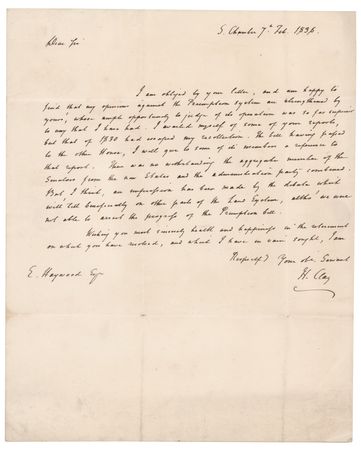 S. Chamber 7th Feb. 1838.
Dear Sir
I am obliged by your letter, and am happy to
find that my opinions against the Preemption System are strengthened by
yours, whose ample opportunity to judge of its operation was so far superior
to any that I have had. I availed myself of some of your reports,
but that of 1830 had escaped my recollection. The bill having passed
to the other House, I will give to some of its members a reference to
that report. There was no withstanding the aggregate number of the
Senators from the new States and the administration party combined.
But, I think, an impression has been made by the debate which
will tell beneficially on other parts of the Land System, altho' we were
not able to arrest the progress of the Preemption bill.
Wishing you most sincerely health and happiness in the retirement
on which you have resolved, and which I have in vain sought, I am
Respectfy Your ob. Servant
E. Haywood Esqr
H. Clay